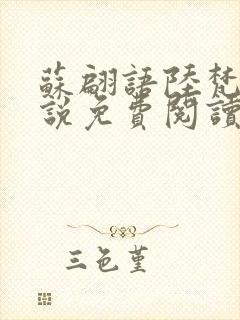 蘇翩語陸梵
說免費閱讀
三色堇